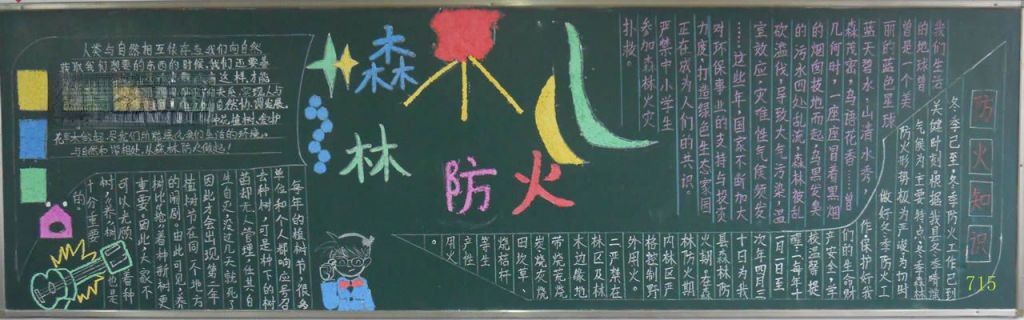 森
林
防
火
防火知识
715
人类与自然相互依存当我们向自然
获取我们想要的东西的时候,我们还要善
与自然和谐相处,从森林防火做起!
我们生活
的地球曾
曾是一个美
丽的蓝色星球
蓝天碧水,山清水秀,
森茂密,鸟语花香……曾
几何时,一座座冒着黑烟
的烟囱拔地而起,乌黑发臭
的污水四处乱流,森林被乱
砍滥伐导致大气污染,温
室效应,灾难性气候频发
……这些年国家不断加大
对环保事业的支持与投资
力度,打造绿色生态家园
正在成为人们的共识
严禁中小学生
参加森林火灾
扑救。
冬季已至,冬季防火工作已到
关键时刻,根据我县冬季
气候为主要特点,冬季森林
防火形势极为严峻,为切
做好冬季防火工
作,保护好我
们的生命财
产安全,学
校温馨提
醒:每年十
一月一日至
次年四月三
十日为我
县森林防
火期,在森
林防火期
内林区严
格控制野
外用火。
二严禁在
林区及林
木边缘地
带烧荒烧
炭烧灰烧
田坎草、
烧秸秆
等生
产性
用火。
每年的植树节,很多
单位和个人都响应号召
去种树,可是种下的树
苗却无人管理,任其自
生自灭,没过几天就死了
因此才会出现第二年
植树节在同一个地方
的闹剧。由此可见,养
树比"抢"着种新树更
重要。因此,大家不
可以光顾着看种
树,"养树"也是
十分重要
的。